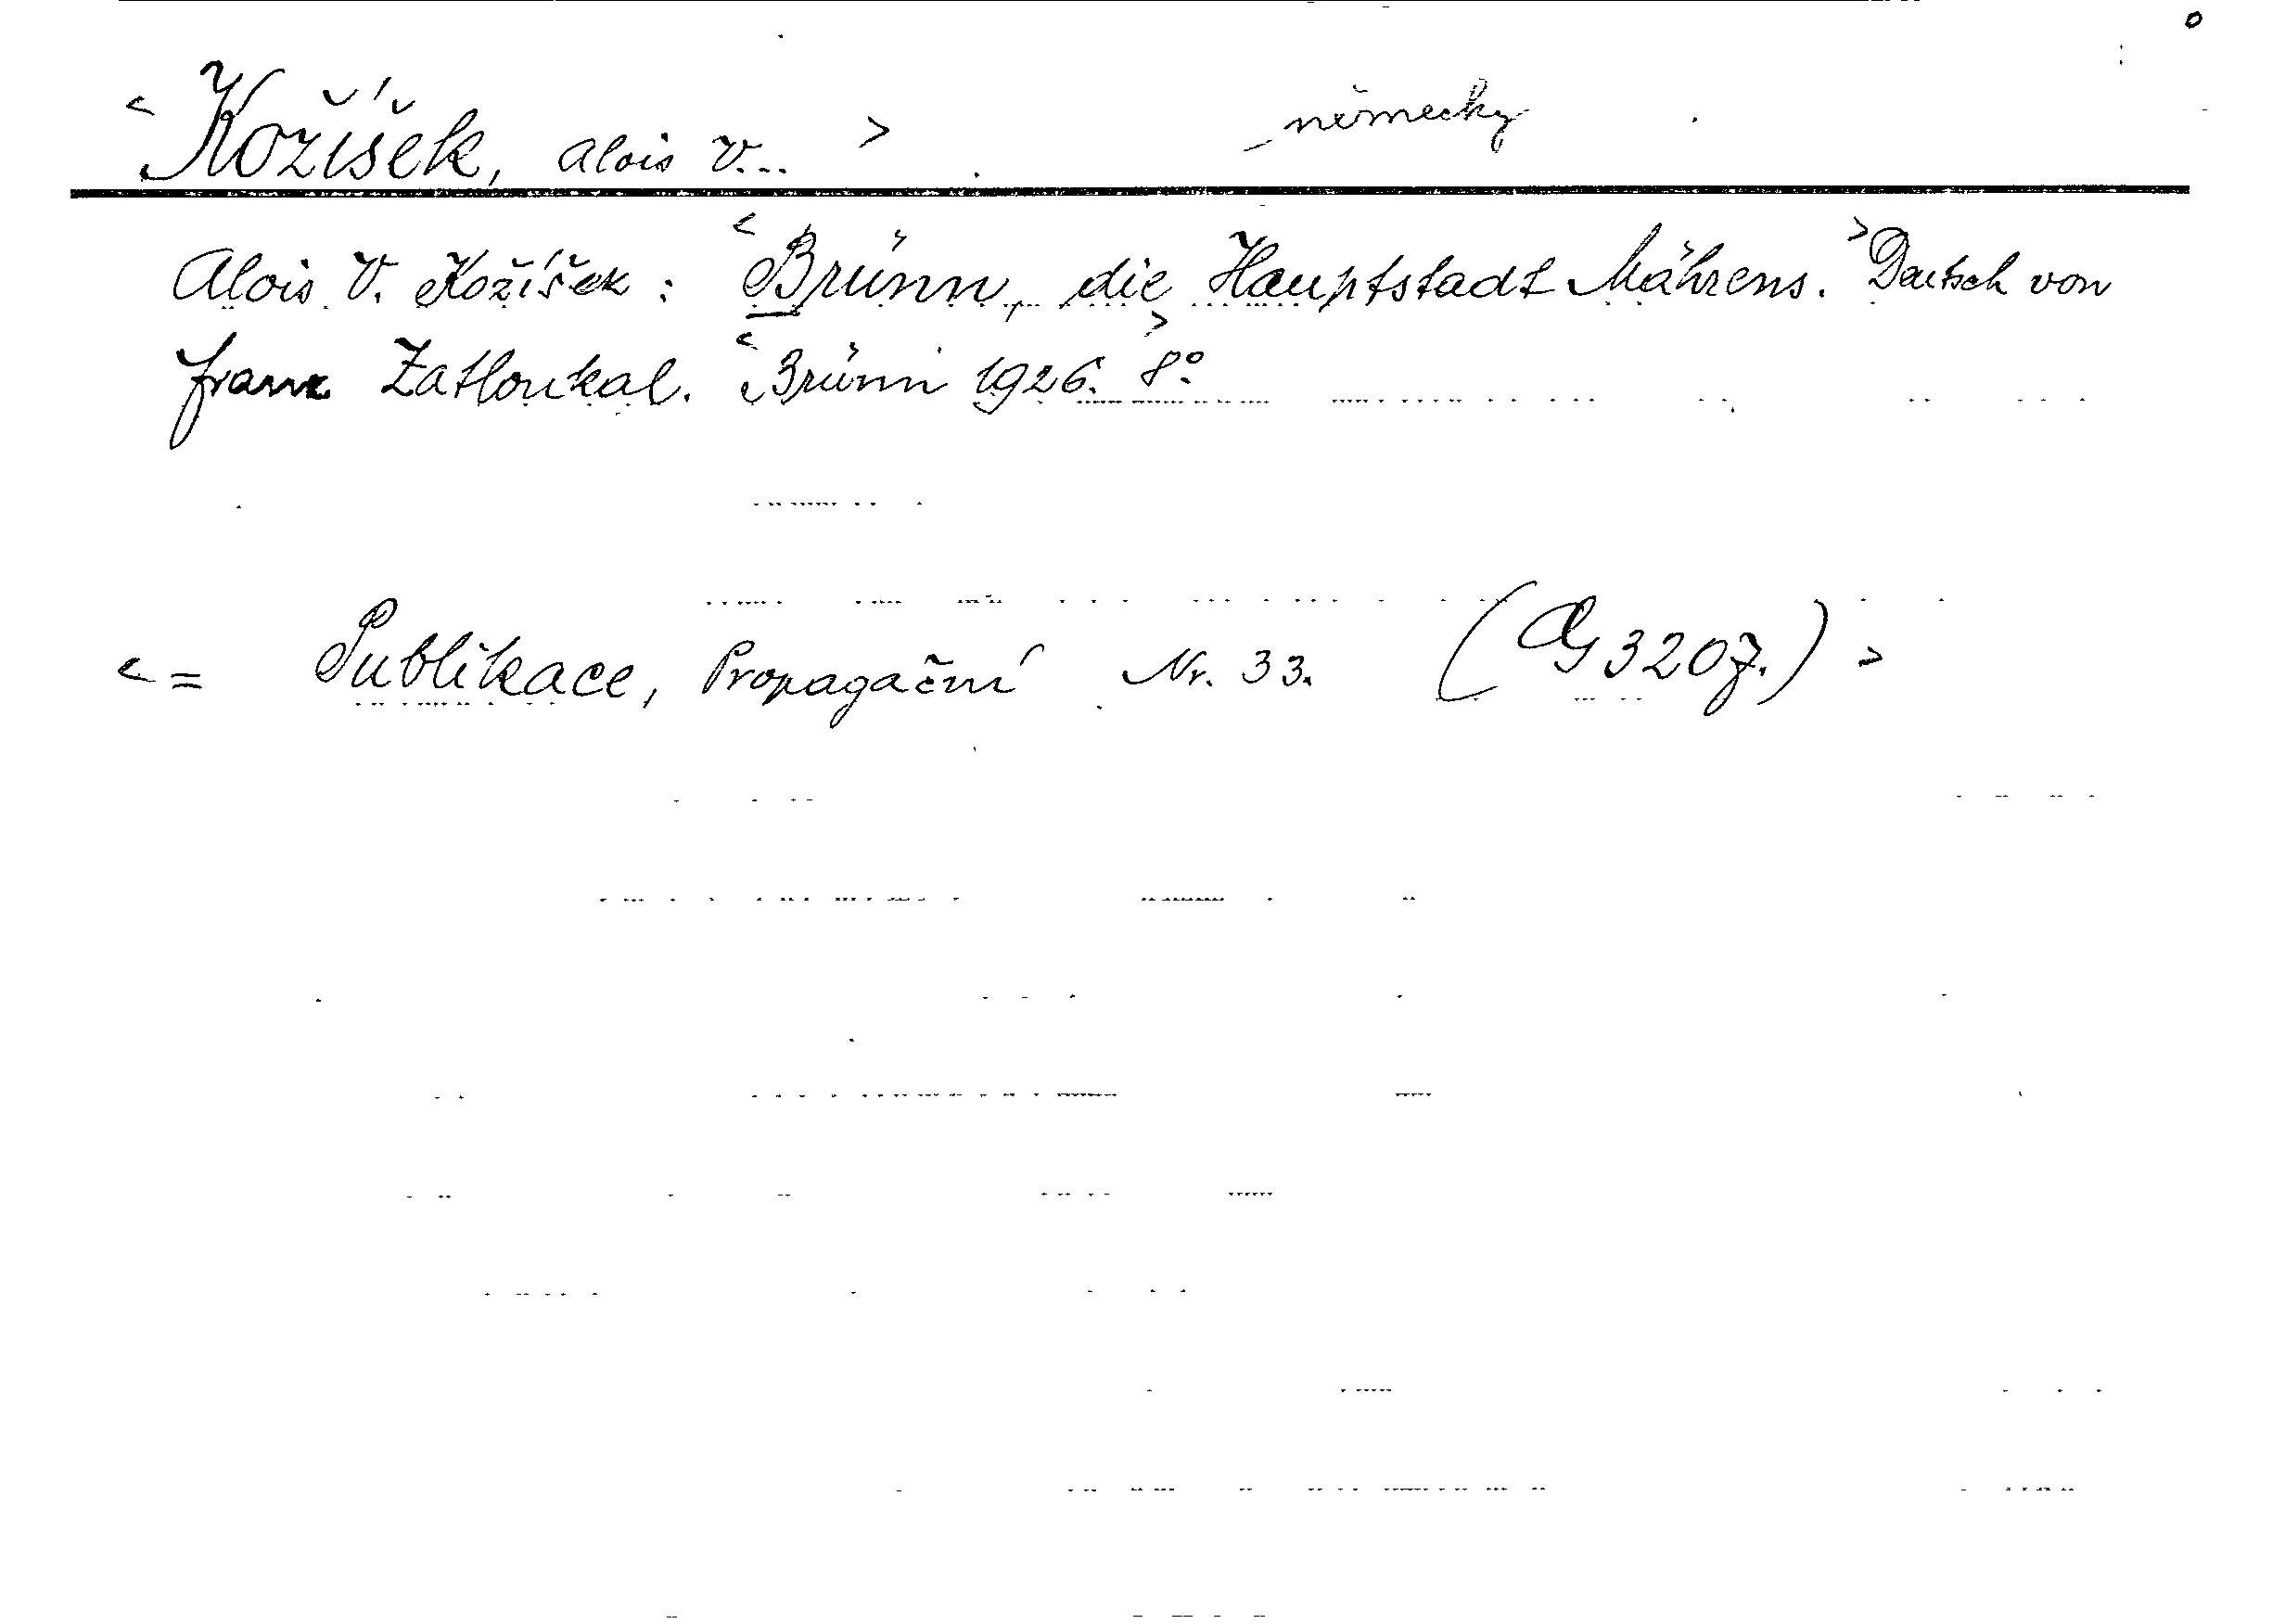 < Kožíšek, Alois V... > německy
Alois V. Kožíšek: < Brünn, die Hauptstadt Mährens. > Deutsch von
Franz Zatloukal. < Brünn 1926. > 8°.
< = Publikace, Propagační Nr. 33. ( 3207.) >